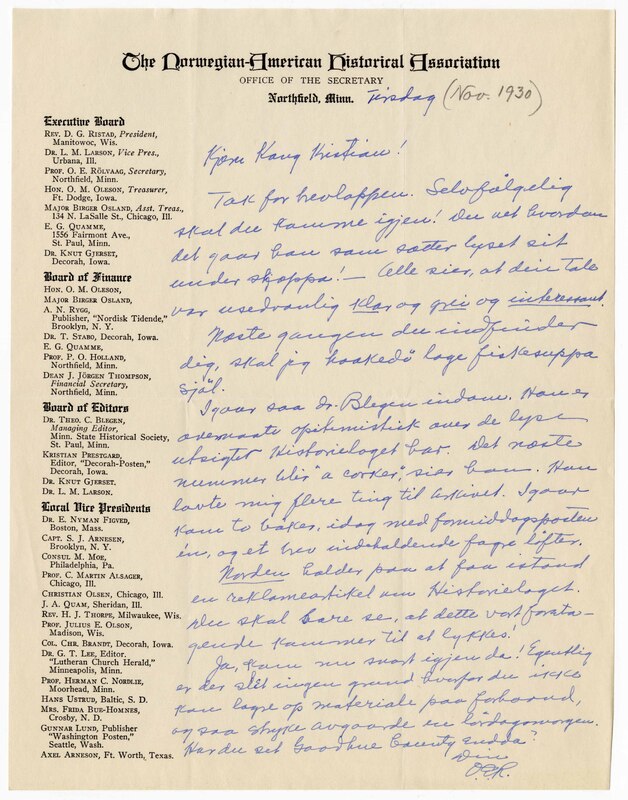 The Norwegian-American Historical Association
OFFICE OF THE SECRETARY
Northfield, Minn. Tirsdag (Nov. 1930)
Executive Board
REV. D. G. RISTAD, President,
Manitowoc, Wis.
DR. L. M. LARSON, Vice Pres.,
Urbana, Ill.
PROF. O. E. RÖLVAAG, Secretary,
Northfield, Minn.
HON. O. M. OLESON, Treasurer,
Ft. Dodge, Iowa.
MAJOR BIRGER OSLAND, Asst. Treas.,
134 N. LaSalle St., Chicago, Ill.
E. G. QUAMME,
1556 Fairmont Ave.,
St. Paul, Minn.
DR. KNUT GJERSET,
Decorah, Iowa.
Board of Finance
HON. O. M. OLESON,
MAJOR BIRGER OSLAND,
A. N. RYGG,
Publisher, "Nordisk Tidende,"
Brooklyn, N. Y.
DR. T. STABO, Decorah, Iowa.
E. G. QUAMME,
PROF. P. O. HOLLAND,
Northfield, Minn.
DEAN J. JÖRGEN THOMPSON,
Financial Secretary,
Northfield, Minn.
Board of Editors
DR. THEO. C. BLEGEN,
Managing Editor,
Minn. State Historical Society,
St. Paul, Minn.
KRISTIAN PRESTGARD,
Editor, "Decorah-Posten,"
Decorah, Iowa.
DR. KNUT GJERSET.
DR. L. M. LARSON.
Local Vice Presidents
DR. E. NYMAN FIGVED,
Boston, Mass.
CAPT. S. J. ARNESEN,
Brooklyn, N. Y.
CONSUL M. MOE,
Philadelphia, Pa.
PROF. C. MARTIN ALSAGER,
Chicago, Ill.
CHRISTIAN OLSEN, Chicago, Ill.
J. A. QUAM, Sheridan, Ill.
REV. H. J. THORPE, Milwaukee, Wis.
PROF. JULIUS E. OLSON,
Madison, Wis.
COL. CHR. BRANDT, Decorah, Iowa.
DR. G. T. LEE, Editor.
"Lutheran Church Herald,"
Minneapolis, Minn.
PROF. HERMAN C. NORDLIE,
Moorhead, Minn.
HANS USTRUD, Baltic, S. D.
MRS. FRIDA BUE-HOMNES,
Crosby, N. D.
GUNNAR LUND, Publisher
"Washington Posten,"
Seattle, Wash.
AXEL ARNESON, Ft. Worth, Texas.
Kjære Kong Kristian!
Tak for brevlappen. Selvfölgelig
skal du komme igjen! Du vet hvordan
det gaar han som sætter lyset sit
under skjeppa! — Alle sier, at din tale
var usedvanlig klar og grei og interessant.
Næste gangen du indfinder
dig, skal jeg lage fiskesuppa
sjöl.
Igaar saa dr. Blegen indom. Han er
overmaate optimistisk over de lyse
utsigter Historielaget har. Det næste
nummer blir "a corker", sier han. Han
lovte mig flere ting til arkivet. Igaar
kom to bøker, idag med formiddagsposten
en, og et brev indeholdende fagre löfter.
Norden holder paa at faa istand
en reklameartikel om Historielaget.
Du skal bare se, at dette vort foreta-
gende kommer til at lykkes!
Ja, kom nu snart igjen da! Egentlig
er der slet ingen grund hvorfor du ikke
kan lagre op materiale paa forhaand,
og saa stryke avgaarde en lördagsmorgen.
Har du set Goodhue County endda?
Din
O.E.R.